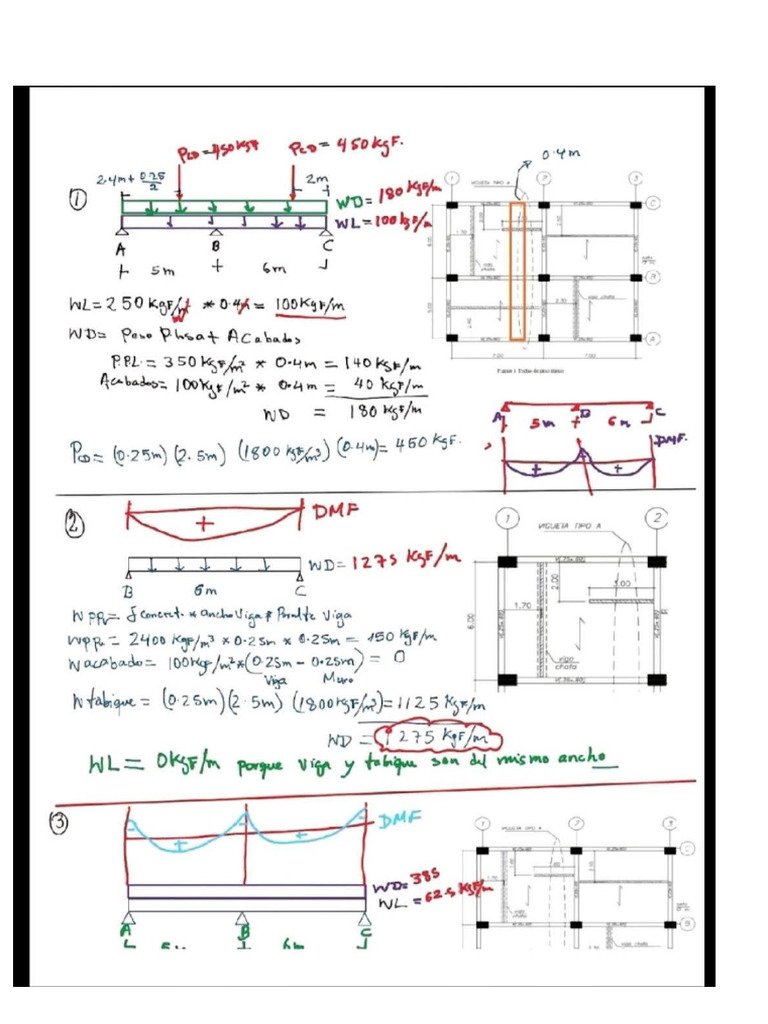 ①
2.4m + 0.25/2
PCD = 450 kgF
PCD = 450 kgF.
2m
WD = 180 kgF/m
WL = 100 kgF/m
A B C
5m 6m
0.4m
VIGUETA TIPO A
1 2 3
C
B
A
WL = 250 kgF/m * 0.4m = 100 kgF/m
WD = Peso Plosa + Acabados
P.PL. = 350 kgF/m² * 0.4m = 140 kgF/m
Acabados = 100 kgF/m² * 0.4m = 40 kgF/m
WD = 180 kgF/m
PCD = (0.25m) (2.5m) (1800 kgF/m³) (0.4m) = 450 kgF.
A B C
5m 6m
DMF.
+ +
②
+ DMF
WD = 1275 kgF/m
B 6m C
WPPV = δ concret. * ancho Viga * Peralte Viga
WPPV = 2400 kgF/m³ * 0.25m * 0.25m = 150 kgF/m
Wacabado = 100 kgF/m² * (0.25m - 0.25m) = 0
Viga Muro
Wtabique = (0.25m) (2.5m) (1800 kgF/m³) = 1125 kgF/m
WD = 1275 kgF/m
WL = 0 kgF/m porque viga y tabique son del mismo ancho
1 2
VIGUETA TIPO A
2.00
3.00
1.70
6.00
viga
chata
③
DMF
- + - + -
WD = 385
WL = 62.5 kgF/m
A B C
6m
1 2 3
VIGUETA TIPO A
C
viga
chata
B